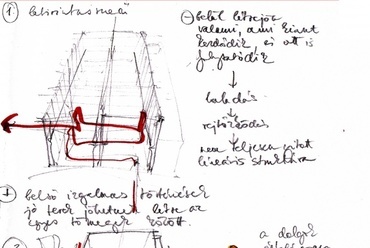 1
⊖ belül létrejön
valami, ami kint
kezdődik, és ott is
folytatódik
↓
haladás
↓
rejtőzködés
↓
nem teljesen nyitott
lineáris struktúra
+ belső izgalmas történések
jó terek jöhetnek létre az
egyes tömegek között.
a dolgok